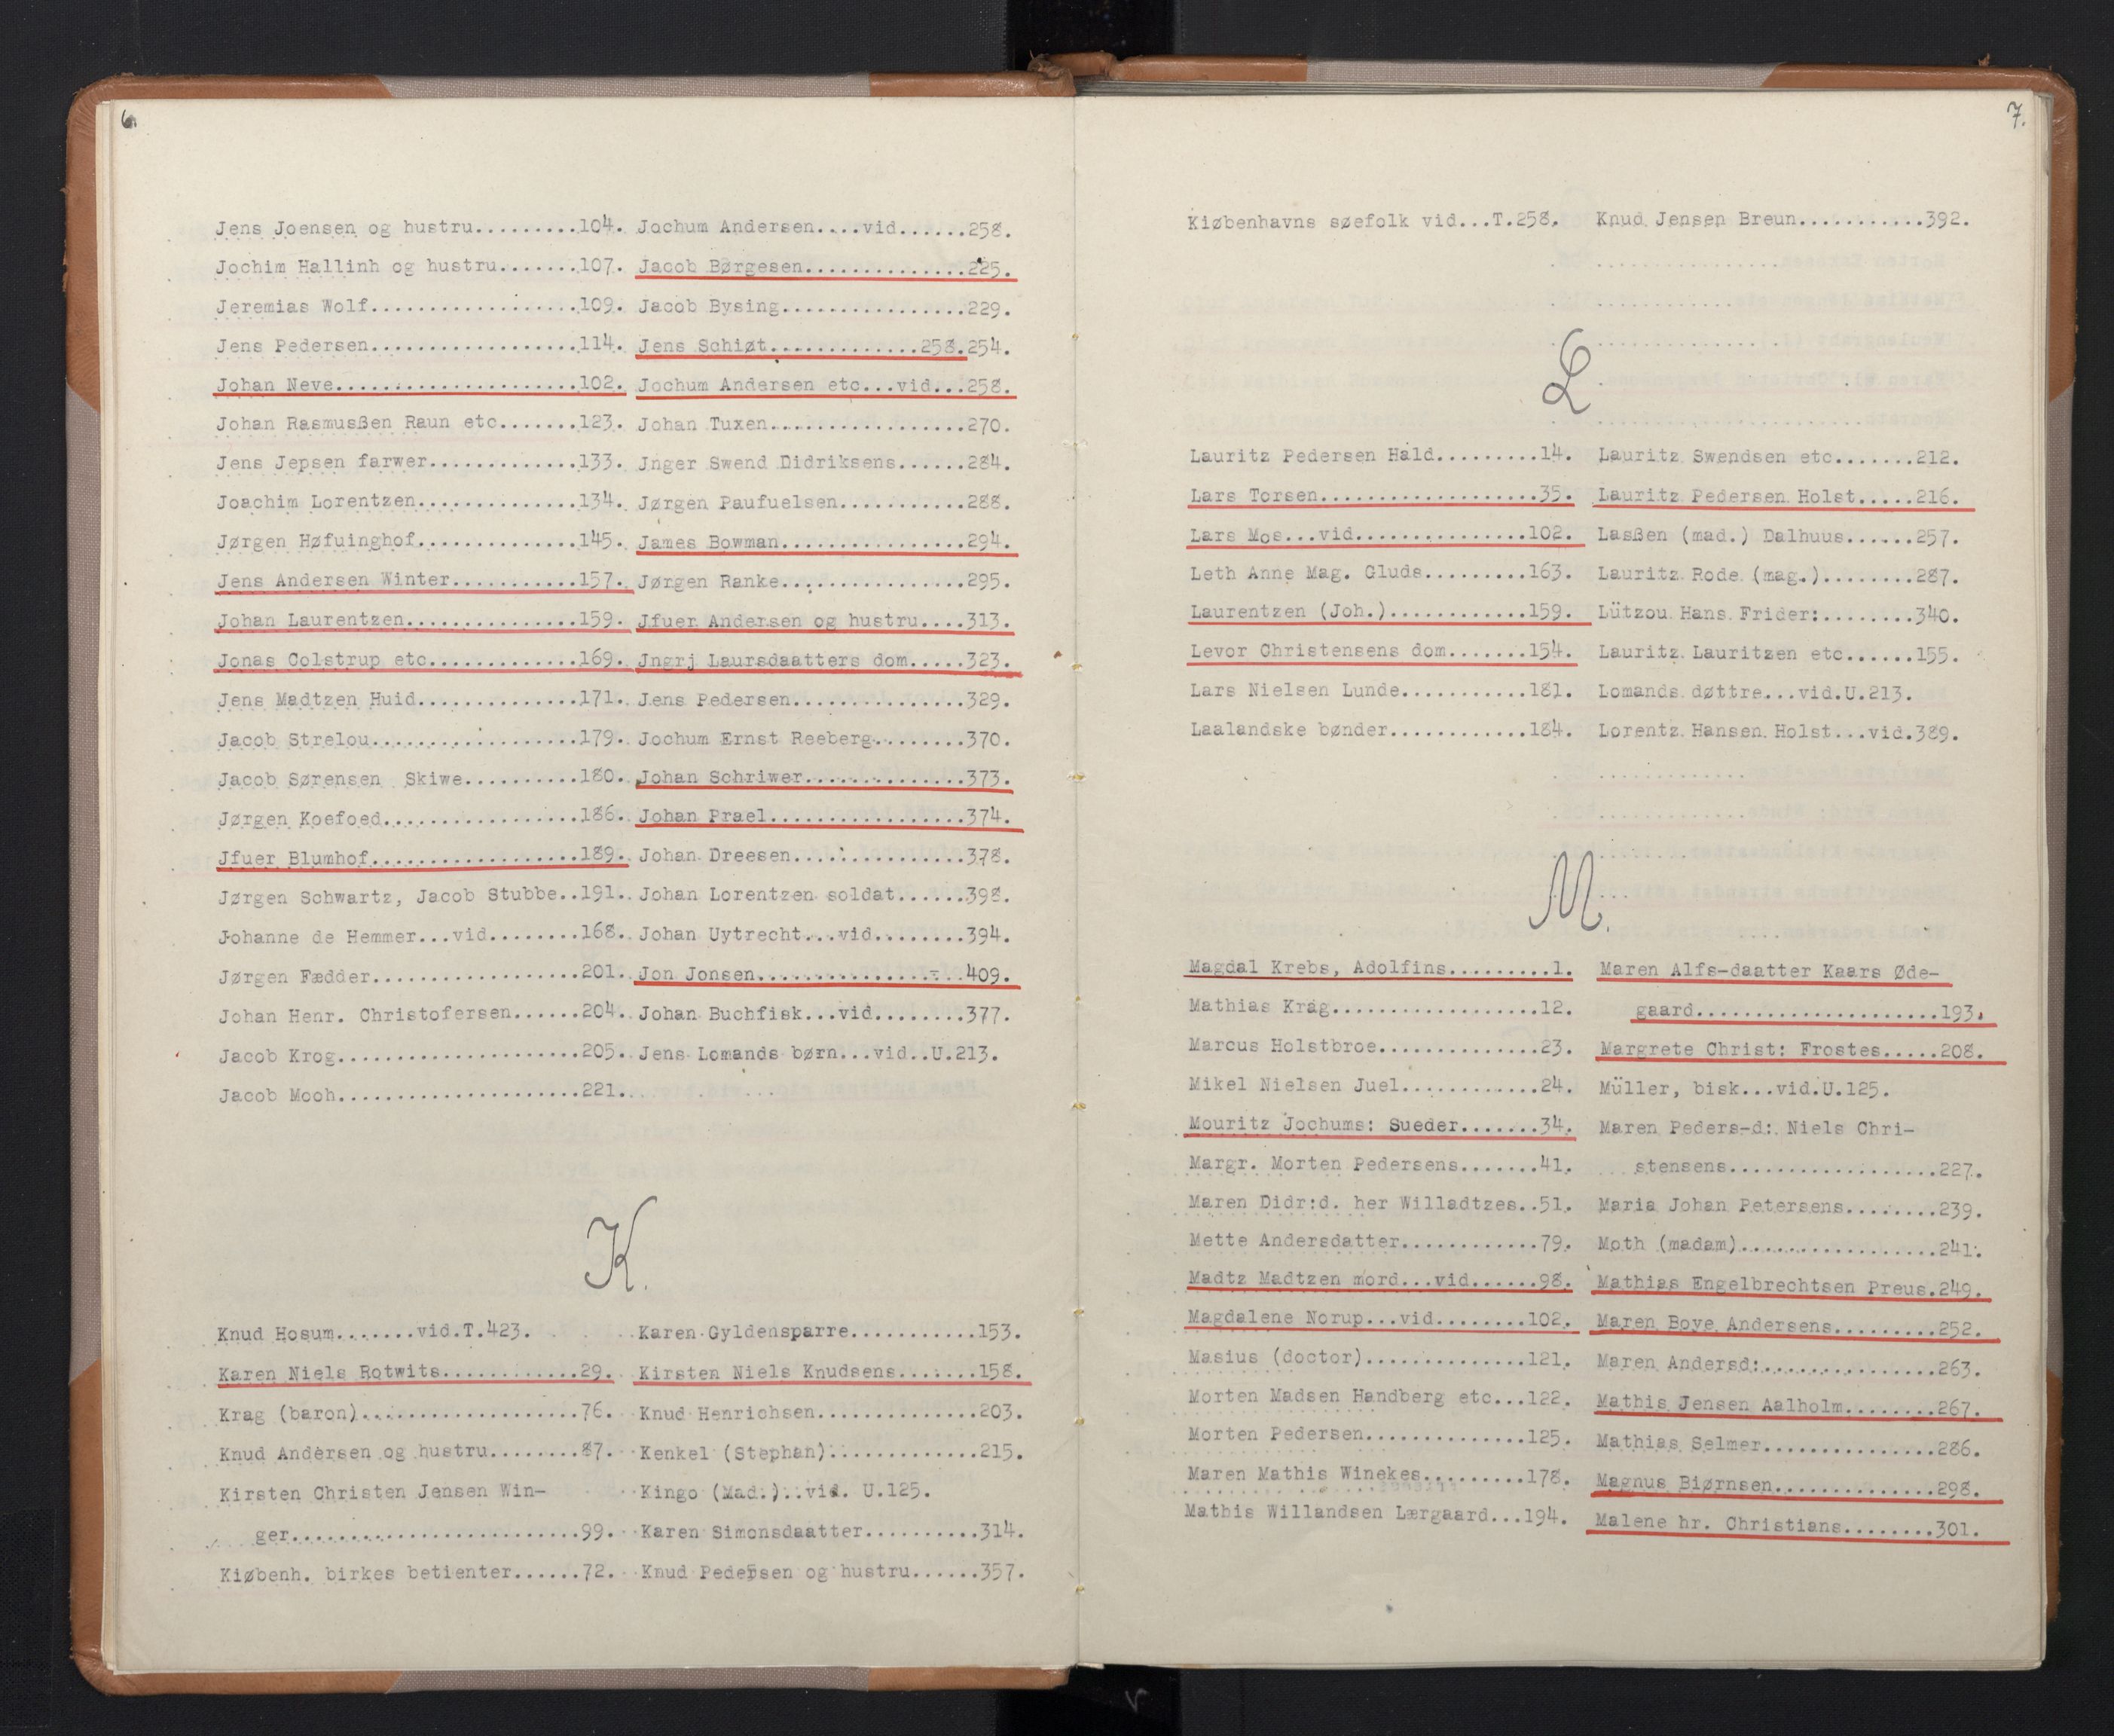 6.
Jens Joensen og hustru.........104.
Jochim Hallinh og hustru.......107.
Jeremias Wolf..................109.
Jens Pedersen..................114.
Johan Neve.....................102.
Johan Rasmusßen Raun etc.......123.
Jens Jepsen farwer.............133.
Joachim Lorentzen..............134.
Jørgen Høfuinghof..............145.
Jens Andersen Winter...........157.
Johan Laurentzen...............159.
Jonas Colstrup etc.............169.
Jens Madtzen Huid..............171.
Jacob Strelou..................179.
Jacob Sørensen Skiwe..........180.
Jørgen Koefoed.................186.
Jfuer Blumhof..................189.
Jørgen Schwartz, Jacob Stubbe..191.
Johanne de Hemmer...vid........168.
Jørgen Fædder..................201.
Johan Henr. Christofersen......204.
Jacob Krog.....................205.
Jacob Mooh.....................221.
Jochum Andersen....vid......258.
Jacob Børgesen..............225.
Jacob Bysing................229.
Jens Schiøt.............258.254.
Jochum Andersen etc...vid...258.
Johan Tuxen.................270.
Jnger Swend Didriksens......284.
Jørgen Paufuelsen...........288.
James Bowman................294.
Jørgen Ranke................295.
Jfuer Andersen og hustru....313.
Jngrj Laursdaatters dom.....323.
Jens Pedersen...............329.
Jochum Ernst Reeberg........370.
Johan Schriwer..............373.
Johan Prael.................374.
Johan Dreesen...............378.
Johan Lorentzen soldat......398.
Johan Uytrecht...vid........394.
Jon Jonsen..................409.
Johan Buchfisk...vid........377.
Jens Lomands børn...vid..U.213.
K.
Knud Hosum.......vid.T.423.
Karen Niels Rotwits............29.
Krag (baron)...................76.
Knud Andersen og hustru........87.
Kirsten Christen Jensen Win-
ger.........................99.
Kiøbenh. birkes betienter......72.
Karen Gyldensparre...........153.
Kirsten Niels Knudsens.......158.
Knud Henrichsen..............203.
Kenkel (Stephan).............215.
Kingo (Mad.)...vid. U.125.
Karen Simonsdaatter..........314.
Knud Pedersen og hustru......357.
7.
Kiøbenhavns søefolk vid...T.258.
Knud Jensen Breun...........392.
L
Lauritz Pedersen Hald.........14.
Lars Torsen...................35.
Lars Mos...vid...............102.
Leth Anne Mag. Gluds.........163.
Laurentzen (Joh.)............159.
Levor Christensens dom.......154.
Lars Nielsen Lunde...........181.
Laalandske bønder............184.
Lauritz Swendsen etc.......212.
Lauritz Pedersen Holst.....216.
Lasßen (mad.) Dalhuus......257.
Lauritz Rode (mag.)........287.
Lützou Hans Frider:........340.
Lauritz Lauritzen etc......155.
Lomands døttre...vid.U.213.
Lorentz Hansen Holst...vid.389.
M.
Magdal Krebs, Adolfins.........1.
Mathias Krag..................12.
Marcus Holstbroe..............23.
Mikel Nielsen Juel............24.
Mouritz Jochums: Sueder.......34.
Margr. Morten Pedersens.......41.
Maren Didr:d. her Willadtzes..51.
Mette Andersdatter............79.
Madtz Madtzen mord...vid......98.
Magdalene Norup...vid........102.
Masius (doctor)..............121.
Morten Madsen Handberg etc...122.
Morten Pedersen..............125.
Maren Mathis Winekes.........178.
Mathis Willandsen Lærgaard...194.
Maren Alfs-daatter Kaars Øde-
gaard.....................193.
Margrete Christ: Frostes.....208.
Müller, bisk...vid.U.125.
Maren Peders-d: Niels Chri-
stensens..................227.
Maria Johan Petersens........239.
Moth (madam).................241.
Mathias Engelbrechtsen Preus.249.
Maren Boye Andersens.........252.
Maren Andersd:...............263.
Mathis Jensen Aalholm........267.
Mathias Selmer...............286.
Magnus Biørnsen..............298.
Malene hr. Christians........301.